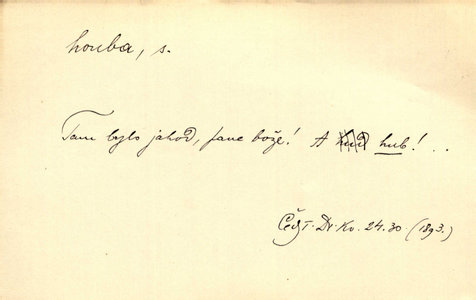 houba, s.
Tam bylo jahod, pane bože! A hub! . .
Dr. Kv. 24. 30. (1893.)